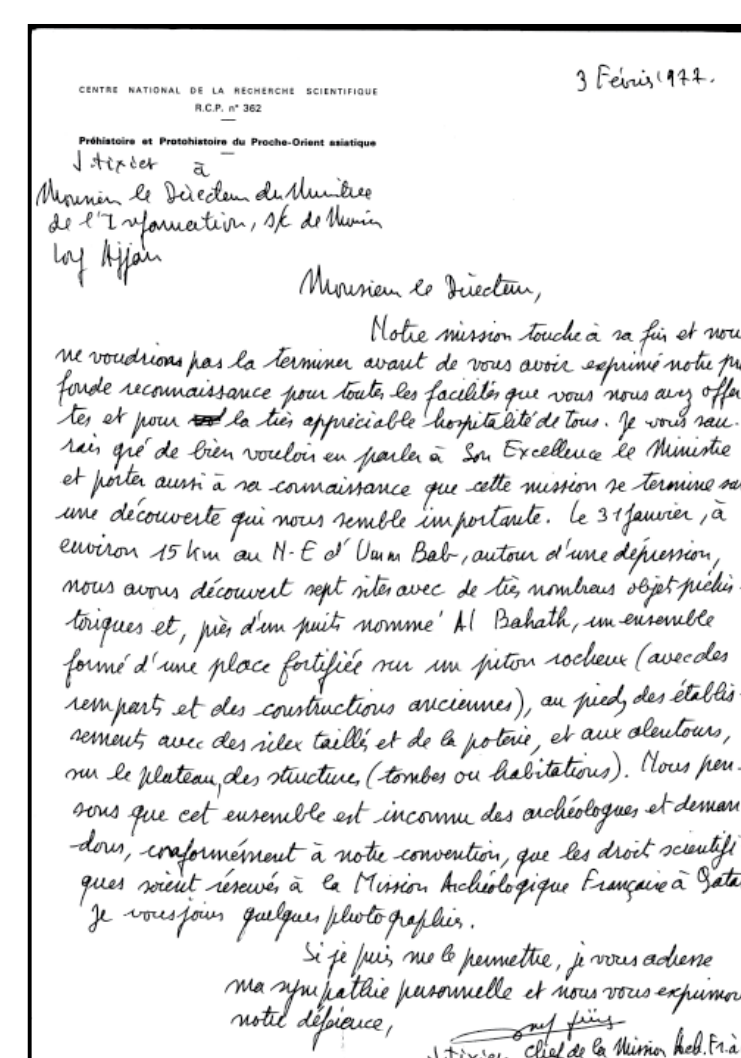 3 Février 1977.
CENTRE NATIONAL DE LA RECHERCHE SCIENTIFIQUE
R.C.P. n° 362
Préhistoire et Protohistoire du Proche-Orient asiatique
J. tixier à
Monsieur le Directeur du Ministère
de l'Information, s/c de
Monsieur le Directeur,
Notre mission touche à sa fin et nous
ne voudrions pas la terminer avant de vous avoir exprimé notre pro
fonde reconnaissance pour toutes les facilités que vous nous avez offer
tes et pour la très appréciable hospitalité de tous. Je vous sau-
rais gré de bien vouloir en parler à Son Excellence le Ministre
et porter aussi à sa connaissance que cette mission se termine sur
une découverte qui nous semble importante. Le 31 Janvier, à
environ 15 km au N-E d'Umm Bab, autour d'une dépression,
nous avons découvert sept sites avec de très nombreux objet préhis-
toriques et, près d'un puits nommé Al Bahath, un ensemble
formé d'une place fortifiée sur un piton rocheux (avec des
remparts et des constructions anciennes), au pied, des établis-
sements avec des silex taillés et de la poterie, et aux alentours,
sur le plateau, des structures (tombes ou habitations). Nous pen-
sons que cet ensemble est inconnu des archéologues et deman
-dons, conformément à notre convention, que les droit scientifi
ques soient réservés à la Mission Archéologique Française à Qata
Je vous joins quelques photographies.
Si je puis me le permettre, je vous adresse
ma sympathie personnelle et nous vous exprimons
notre déférence,
J. tixier, chef de la Mission Arch. Fr. à